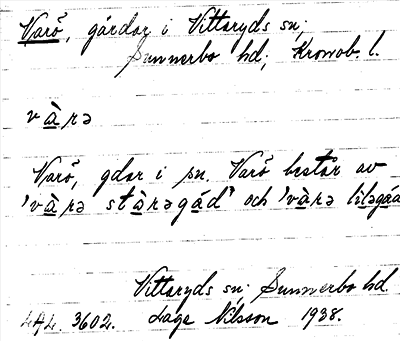 Varö, gårdar i Vittaryds sn;
Sunnerbo hd; Kronob. l.
v à r ə
Varö, gdar i sn. Varö består av
'v à rə st à rəgá d' och 'v à rə lìləgáa
Vittaryds sn; Sunnerbo hd.
LAL. 3602. Lage Nilsson 1938.